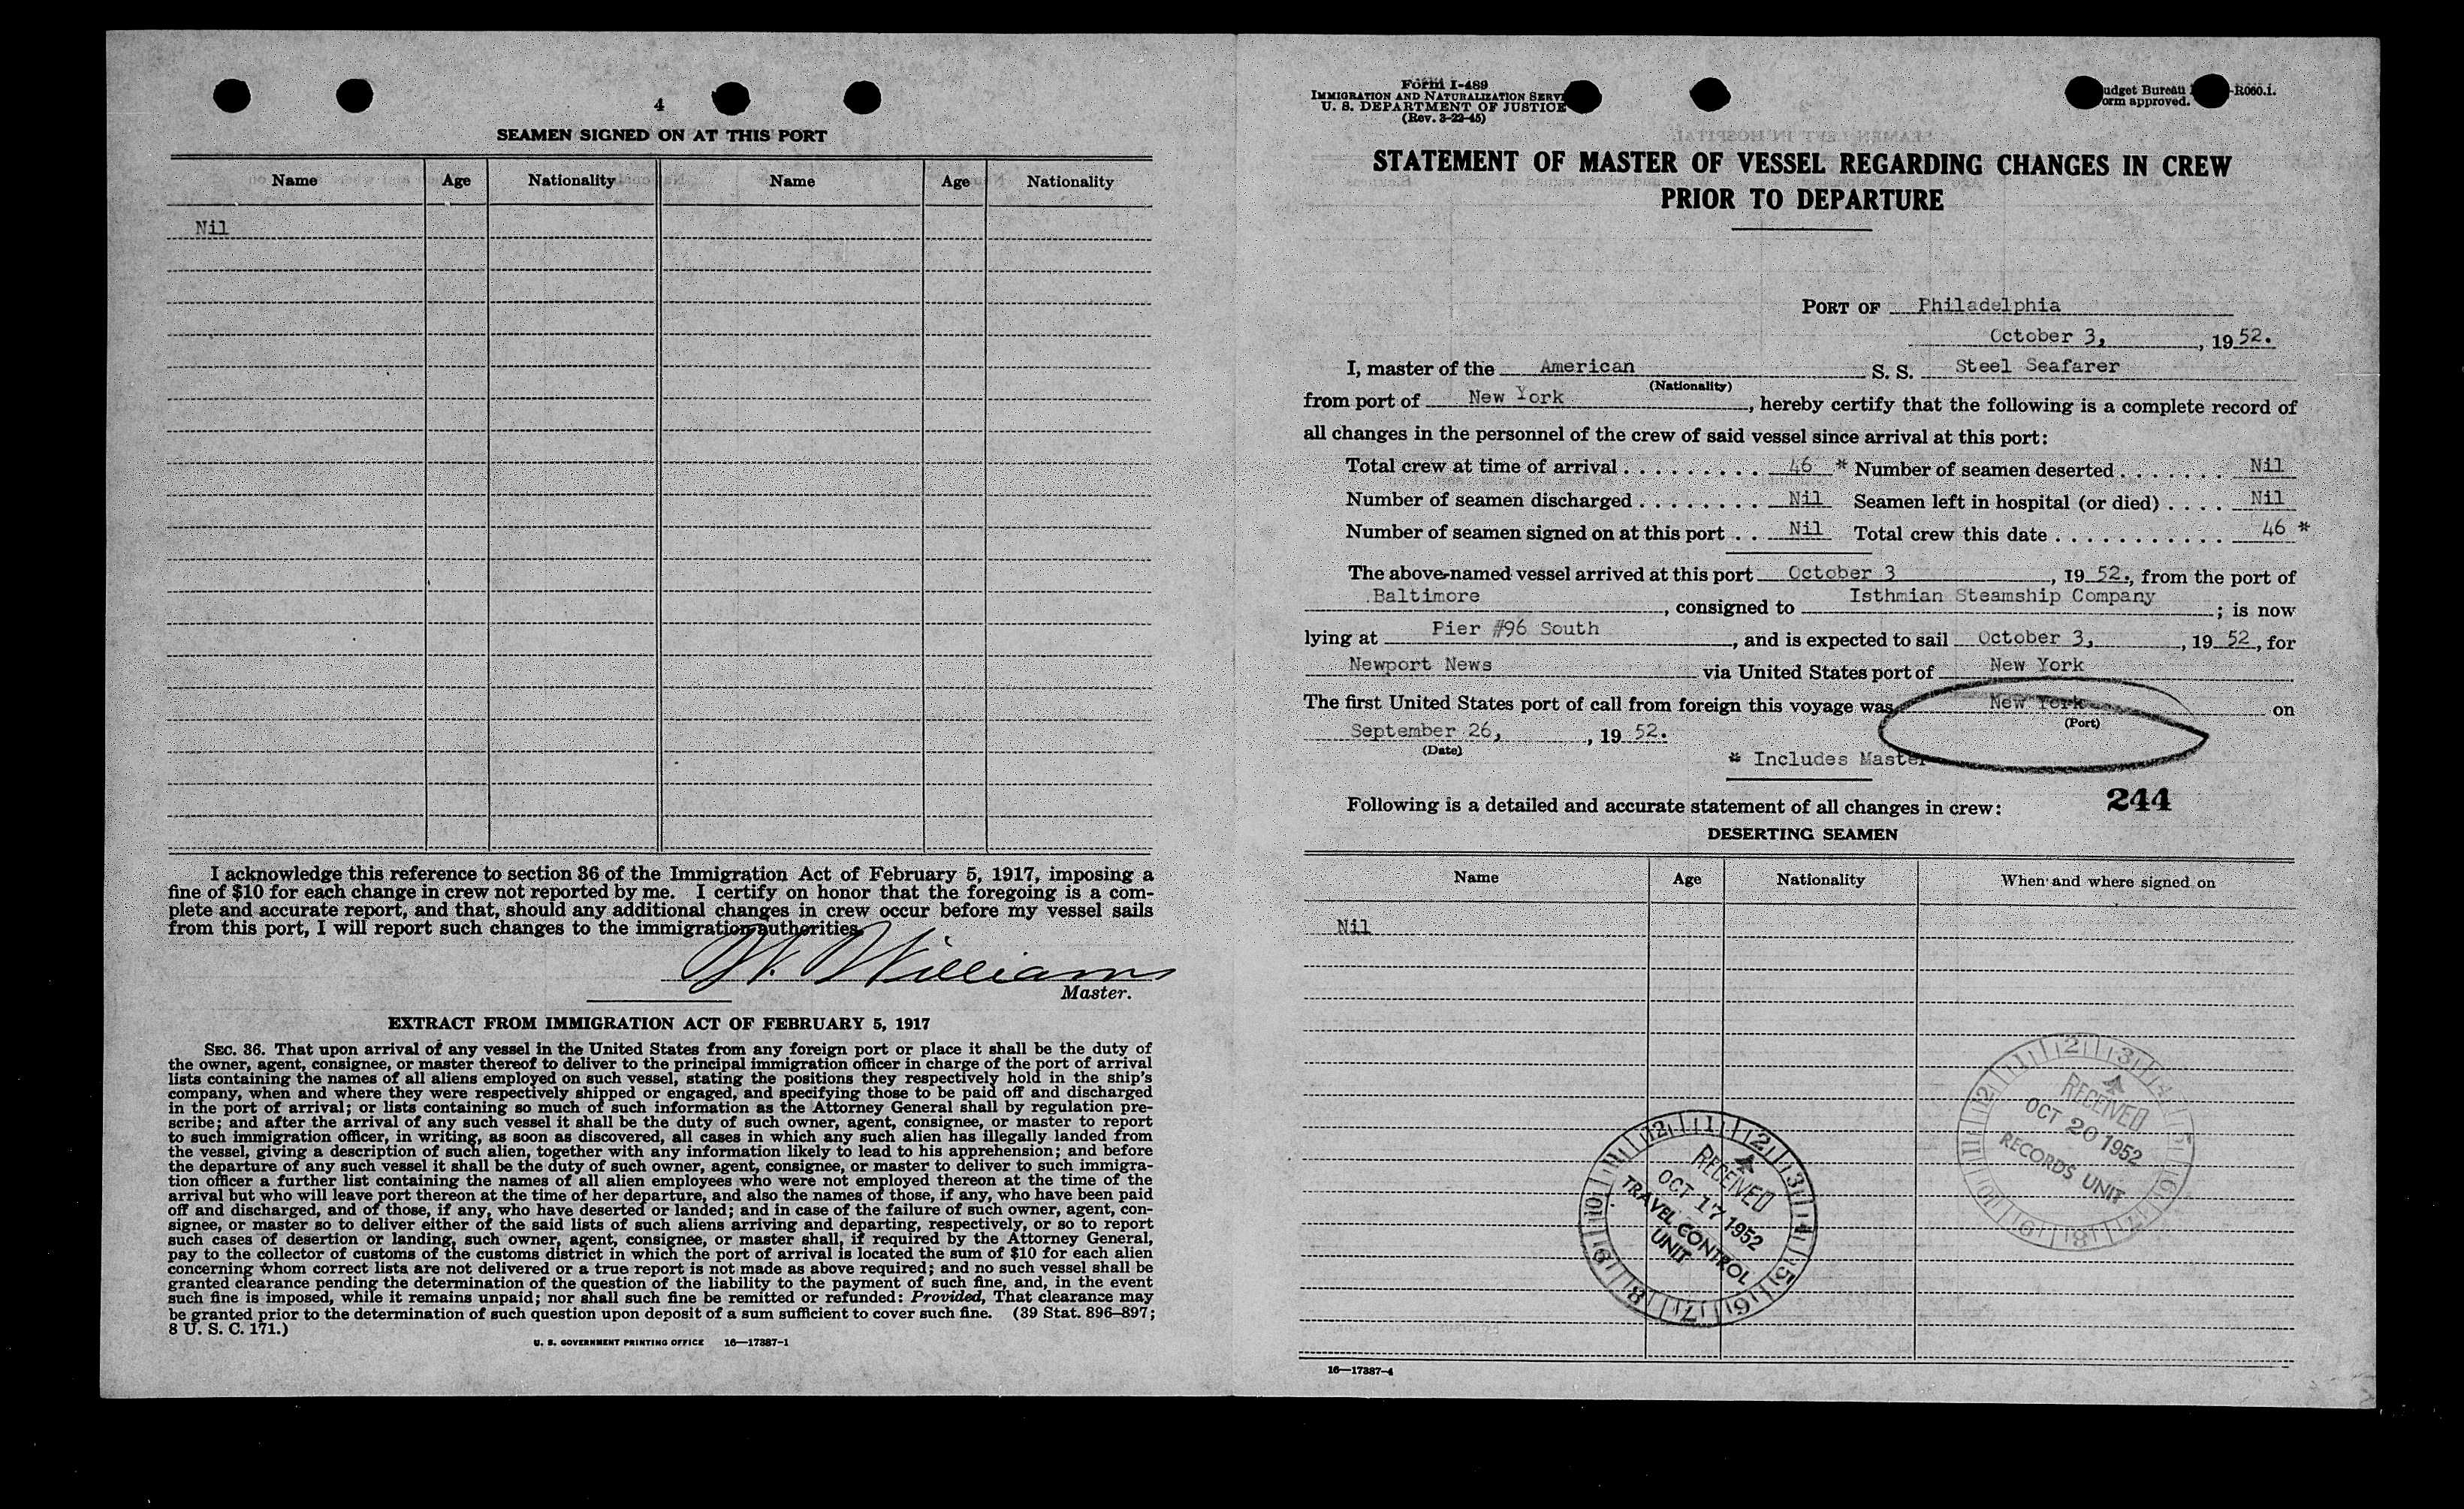 4
SEAMEN SIGNED ON AT THIS PORT
Name Age Nationality Name Age Nationality
Nil
I acknowledge this reference to section 36 of the Immigration Act of February 5, 1917, imposing a
fine of $10 for each change in crew not reported by me. I certify on honor that the foregoing is a com-
plete and accurate report, and that, should any additional changes in crew occur before my vessel sails
from this port, I will report such changes to the immigration authorities.
W. Williams
Master.
EXTRACT FROM IMMIGRATION ACT OF FEBRUARY 5, 1917
SEC. 36. That upon arrival of any vessel in the United States from any foreign port or place it shall be the duty of
the owner, agent, consignee, or master thereof to deliver to the principal immigration officer in charge of the port of arrival
lists containing the names of all aliens employed on such vessel, stating the positions they respectively hold in the ship's
company, when and where they were respectively shipped or engaged, and specifying those to be paid off and discharged
in the port of arrival; or lists containing so much of such information as the Attorney General shall by regulation pre-
scribe; and after the arrival of any such vessel it shall be the duty of such owner, agent, consignee, or master to report
to such immigration officer, in writing, as soon as discovered, all cases in which any such alien has illegally landed from
the vessel, giving a description of such alien, together with any information likely to lead to his apprehension; and before
the departure of any such vessel it shall be the duty of such owner, agent, consignee, or master to deliver to such immigra-
tion officer a further list containing the names of all alien employees who were not employed thereon at the time of the
arrival but who will leave port thereon at the time of her departure, and also the names of those, if any, who have been paid
off and discharged, and of those, if any, who have deserted or landed; and in case of the failure of such owner, agent, con-
signee, or master so to deliver either of the said lists of such aliens arriving and departing, respectively, or so to report
such cases of desertion or landing, such owner, agent, consignee, or master shall, if required by the Attorney General,
pay to the collector of customs of the customs district in which the port of arrival is located the sum of $10 for each alien
concerning whom correct lists are not delivered or a true report is not made as above required; and no such vessel shall be
granted clearance pending the determination of the question of the liability to the payment of such fine, and, in the event
such fine is imposed, while it remains unpaid; nor shall such fine be remitted or refunded: Provided, That clearance may
be granted prior to the determination of such question upon deposit of a sum sufficient to cover such fine. (39 Stat. 896-897;
8 U. S. C. 171.)
U. S. GOVERNMENT PRINTING OFFICE 16—17387-1
Form I-489
IMMIGRATION AND NATURALIZATION SERVI
U. S. DEPARTMENT OF JUSTICE
(Rev. 3-22-45)
udget Bureau -R060.1.
orm approved.
STATEMENT OF MASTER OF VESSEL REGARDING CHANGES IN CREW
PRIOR TO DEPARTURE
PORT OF Philadelphia
October 3, , 1952.
I, master of the American S. S. Steel Seafarer
(Nationality)
from port of New York, hereby certify that the following is a complete record of
all changes in the personnel of the crew of said vessel since arrival at this port:
Total crew at time of arrival . . . . . . . . . 46 * Number of seamen deserted . . . . . . . Nil
Number of seamen discharged . . . . . . . . Nil Seamen left in hospital (or died) . . . . Nil
Number of seamen signed on at this port . . Nil Total crew this date . . . . . . . . . . . 46 *
The above-named vessel arrived at this port October 3, 1952., from the port of
Baltimore, consigned to Isthmian Steamship Company; is now
lying at Pier #96 South, and is expected to sail October 3, , 1952, for
Newport News via United States port of New York
The first United States port of call from foreign this voyage was New York on
(Port)
September 26, , 1952.
(Date)
* Includes Master
244
Following is a detailed and accurate statement of all changes in crew:
DESERTING SEAMEN
Name Age Nationality When and where signed on
Nil
12 1 2 3 4 5 6 7 8 9 10 11
RECEIVED
OCT 17 1952
TRAVEL CONTROL
UNIT
12 1 2 3 4 5 6 7 8 9 10 11
RECEIVED
OCT 20 1952
RECORDS UNIT
16—17387-4